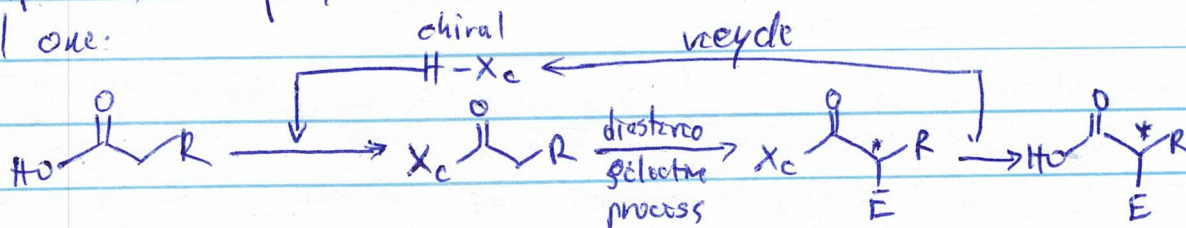 l one:
chiral
H-Xc
recycle
O
HO
R
Xc
O
R
diastereo
selective
process
Xc
O
*
R
E
HO
O
*
R
E